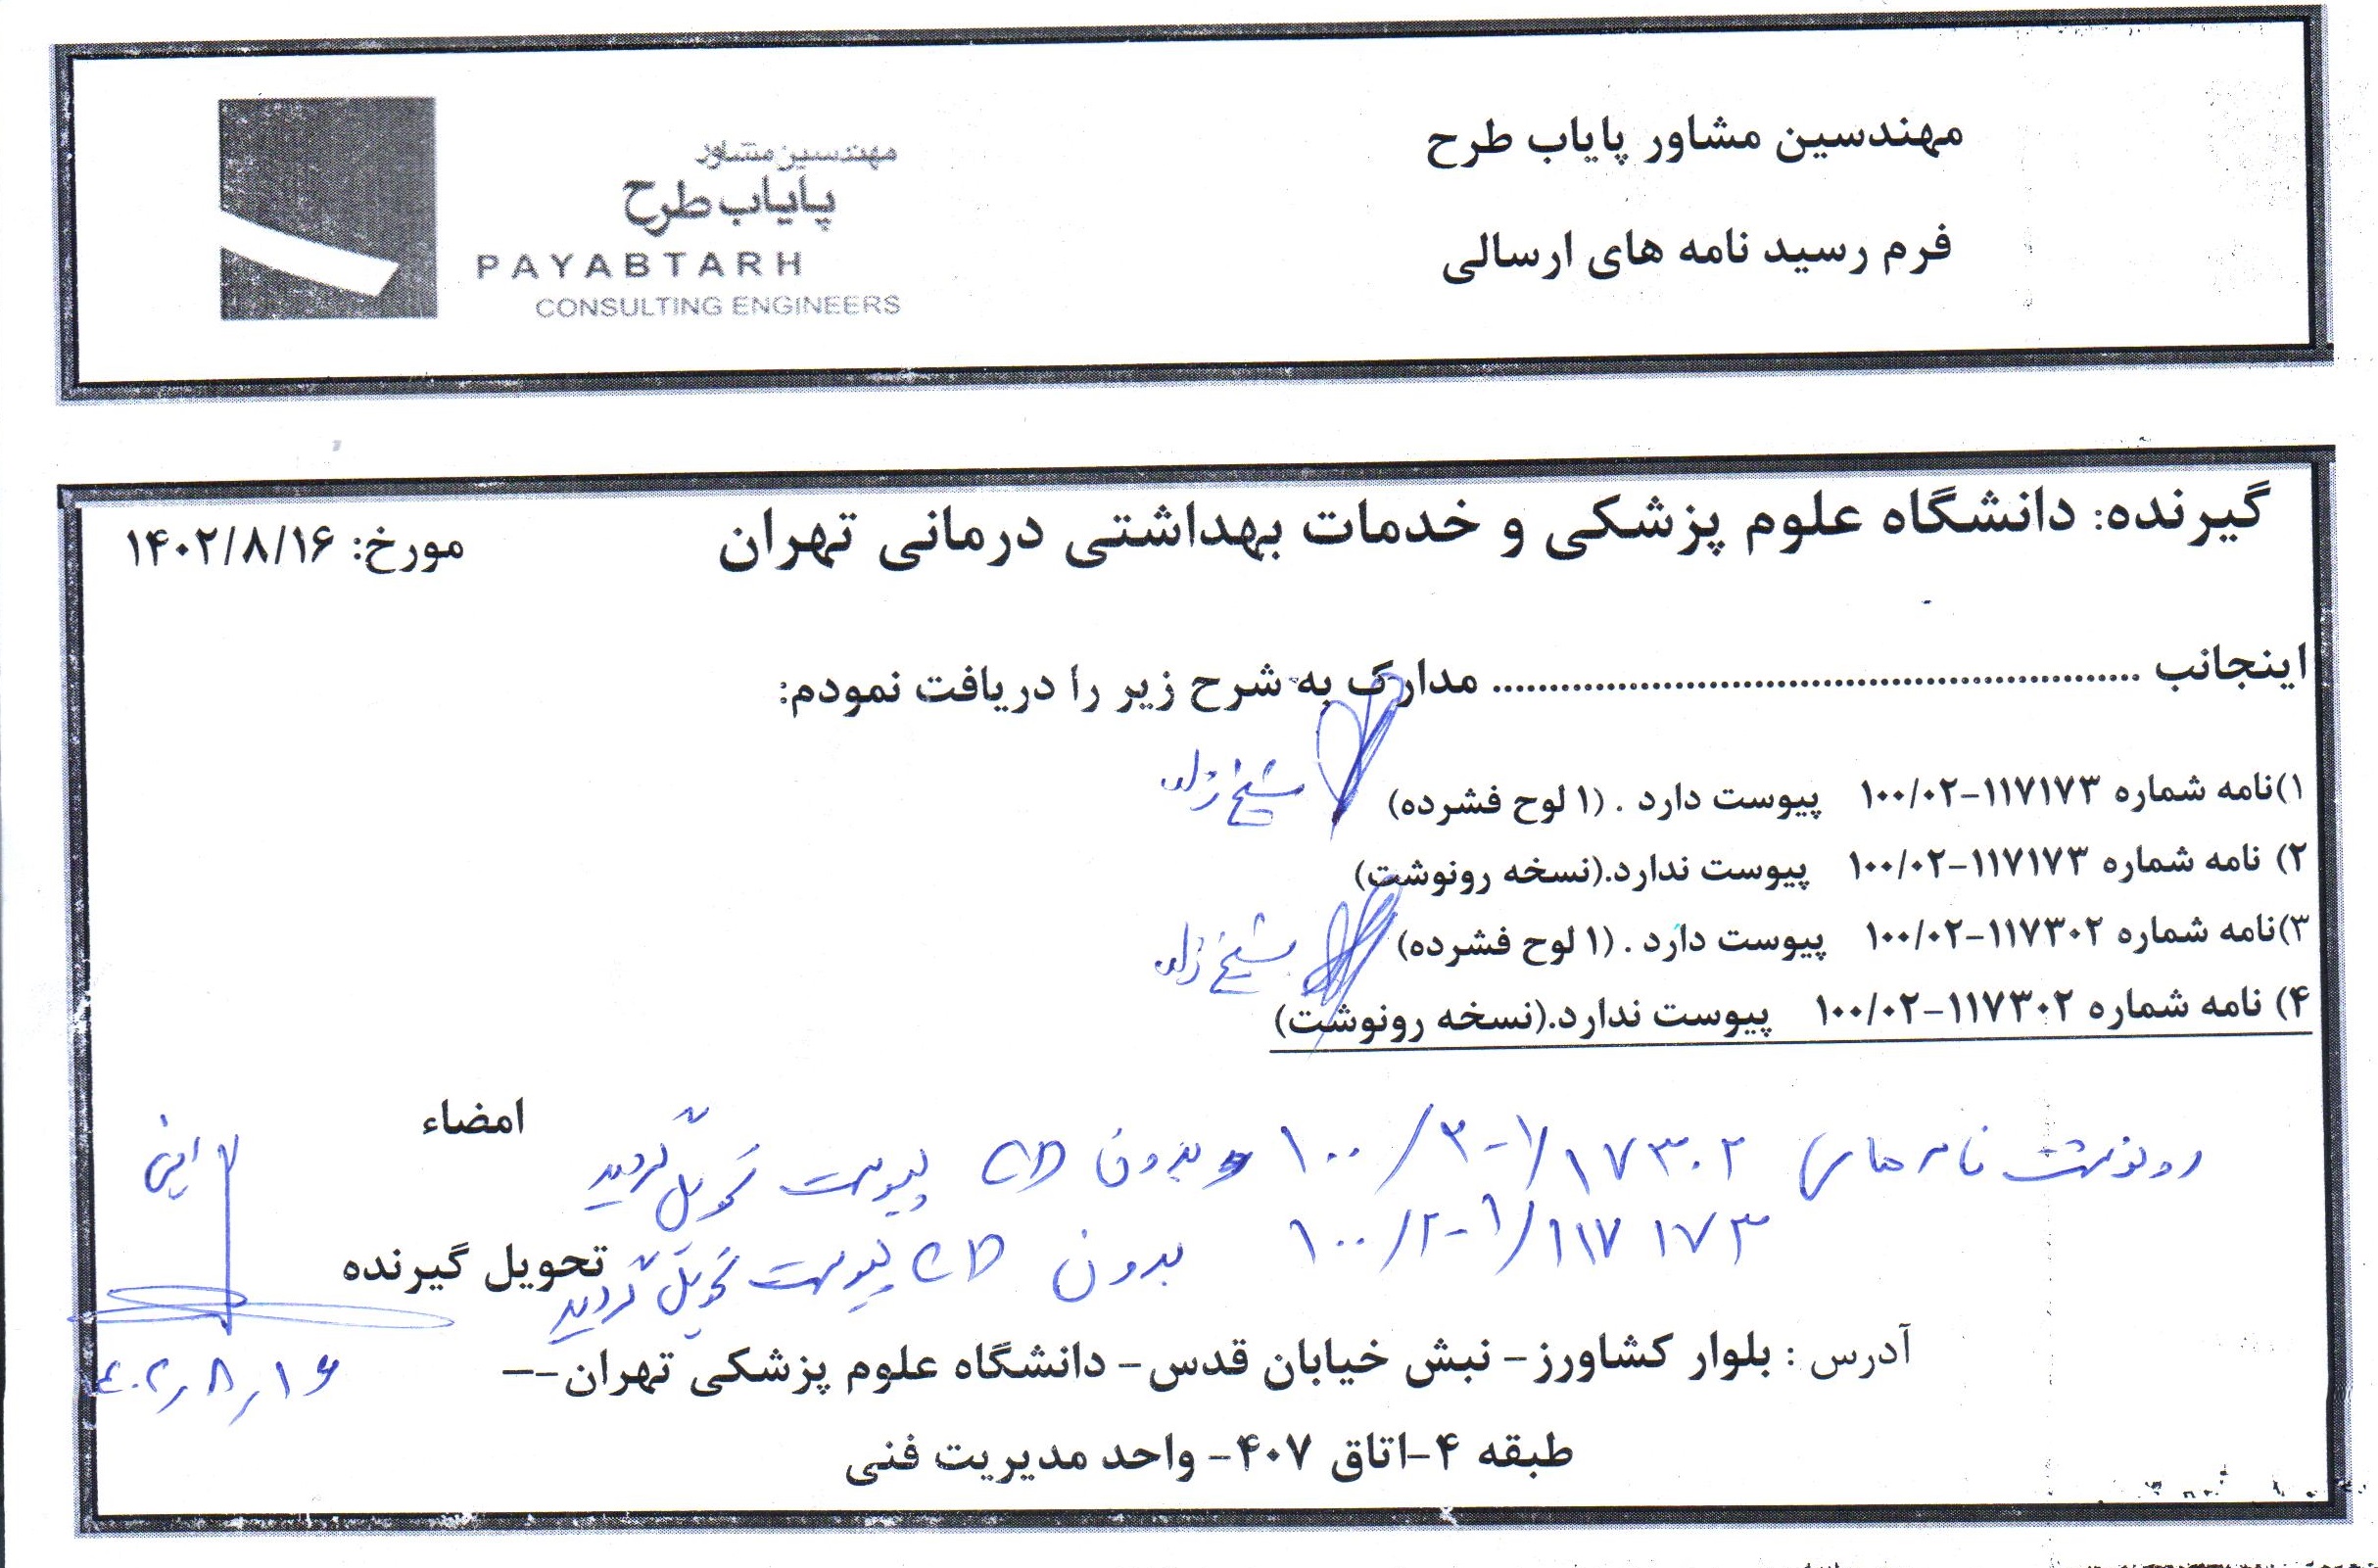 مهندسین مشاور پایاب طرح
فرم رسید نامه های ارسالی
مهندسین مشاور
پایاب طرح
PAYABTARH
CONSULTING ENGINEERS
گیرنده: دانشگاه علوم پزشکی و خدمات بهداشتی درمانی تهران
مورخ: ۱۴۰۲/۸/۱۶
اینجانب ........................................................ مدارک به شرح زیر را دریافت نمودم:
۱)نامه شماره ۱۱۷۱۷۳-۱۰۰/۰۲ پیوست دارد . (۱ لوح فشرده)
شیخ زاده
۲) نامه شماره ۱۱۷۱۷۳-۱۰۰/۰۲ پیوست ندارد.(نسخه رونوشت)
۳)نامه شماره ۱۱۷۳۰۲-۱۰۰/۰۲ پیوست دارد . (۱ لوح فشرده)
شیخ زاده
۴) نامه شماره ۱۱۷۳۰۲-۱۰۰/۰۲ پیوست ندارد.(نسخه رونوشت)
امضاء
رونوشت نامه های ۱۱۷۳۰۲/۱-۲/۱۰۰ بدون CD پیوست تحویل گردید
۱۱۷۱۷۳/۱-۲/۱۰۰ بدون CD پیوست تحویل گردید
تحویل گیرنده
آدرس : بلوار کشاورز- نبش خیابان قدس- دانشگاه علوم پزشکی تهران--
۴۰۲٫۸٫۱۶
طبقه ۴-اتاق ۴۰۷- واحد مدیریت فنی